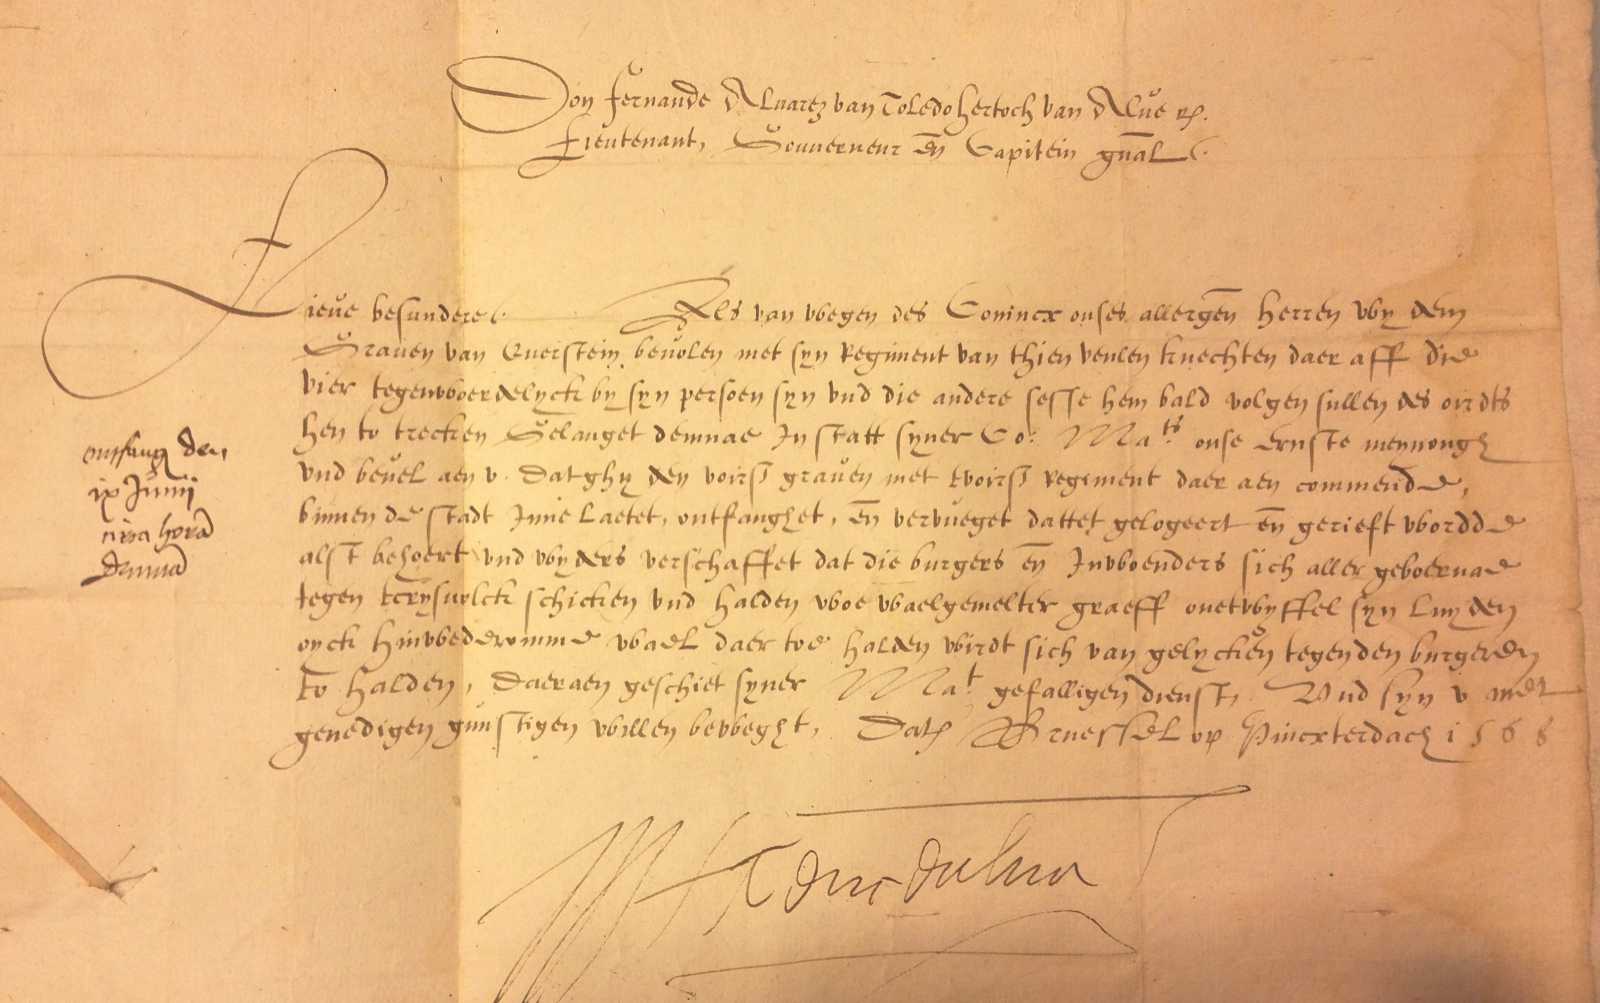 Don Fernande Alvarez van Toledo Hertoch van Alve etc.
Lieutenant, Gouverneur en̄ Capitein gn̄al
Lieve besundere Als van wegen des Conincx onses allergen̄ Herren wy dem
Graven van Overstein bevolen met syn Regiment van thien venlen knechten daer aff die
vier tegenwoerdelyck by syn persoen syn und die andere seste hem bald volgen sullen des oirdts
hen to trecken Gelanget demnae In statt syner Co. Mats onse ernste meynongh
und bevel aen v. Dat ghy den voirs graven met tvoirs Regiment daer aen commende,
binnen de stadt Inne Laetet, ontfanghet, en̄ vervueget dattet gelogeert en̄ gerieft wordde
alst behoert und wyders verschaffet dat die burgers en̄ Inwoenders sich aller geboernae
tegen tcrysvolck schicken und halden woe waelgemelter graeff onetwyffel syn Luyden
oyck hinwederomme wael daer toe halden wirdt sich van gelycken tegen den burgeren
to halden, Daeraen geschiet syner Mat. gefalligen dienst, Und syn v met
genedigen gunstigen willen beweght, Dat Bruessel op Pincxterdach 1568
ontfang den
ix Junij
hora
F A duc dalva